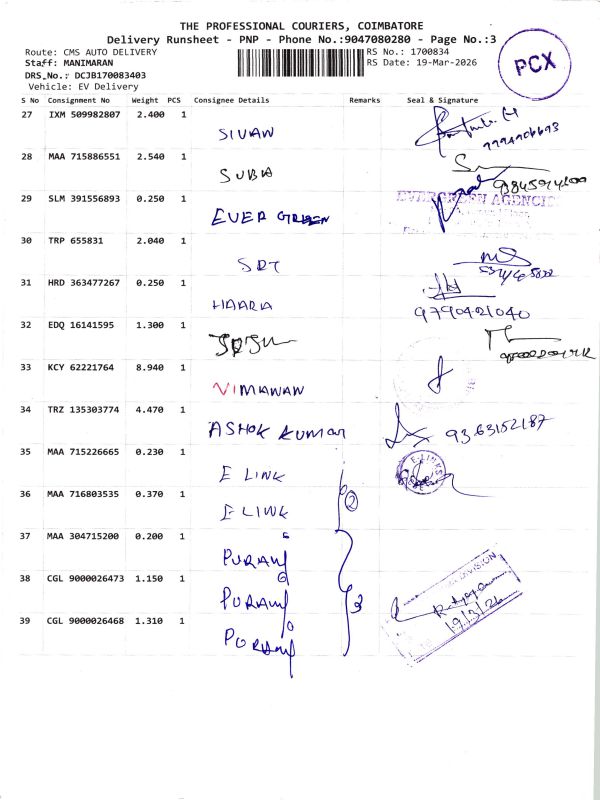 THE PROFESSIONAL COURIERS, COIMBATORE
Delivery Runsheet - PNP - Phone No.:9047080280 - Page No.:3
Route: CMS AUTO DELIVERY
RS No.: 1700834
Staff: MANIMARAN
RS Date: 19-Mar-2026
DRS_No.: DCJB170083403
Vehicle: EV Delivery
PCX
S No Consignment No Weight PCS Consignee Details Remarks Seal & Signature
27 IXM 509982807 2.400 1 SIVAN
28 MAA 715886551 2.540 1 SUBA
29 SLM 391556893 0.250 1 EVER GREEN EVERGREEN AGENCIES
30 TRP 655831 2.040 1 SRT
31 HRD 363477267 0.250 1 HAARA 9790421040
32 EDQ 16141595 1.300 1
33 KCY 62221764 8.940 1 VIMANAN
34 TRZ 135303774 4.470 1 ASHOK KUMAR 93.63152187
35 MAA 715226665 0.230 1 E LINK E-LINKS
36 MAA 716803535 0.370 1 E LINK 2
37 MAA 304715200 0.200 1 PURANI
38 CGL 9000026473 1.150 1 PURANI 3 DIVISION
39 CGL 9000026468 1.310 1 PORANI 19/3/26